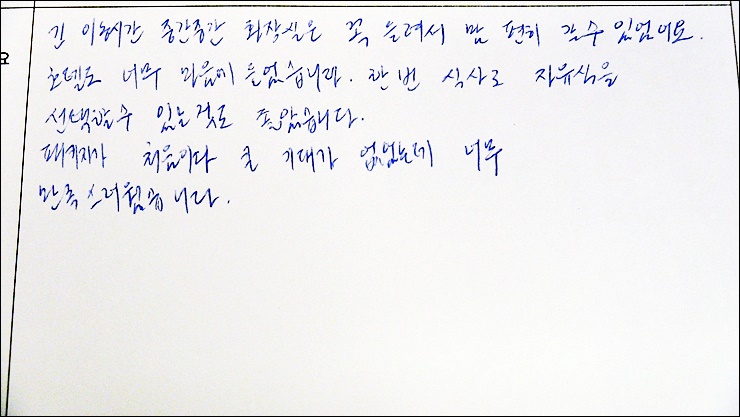 긴 이동시간 중간중간 화장실은 꼭 들려서 맘 편히 갈수 있었어요.
요
호텔도 너무 마음에 들었습니다. 한 번 식사로 자유식을
선택할수 있는것도 좋았습니다.
패키지가 처음이다 큰 기대가 없었는데 너무
만족스러웠습니다.